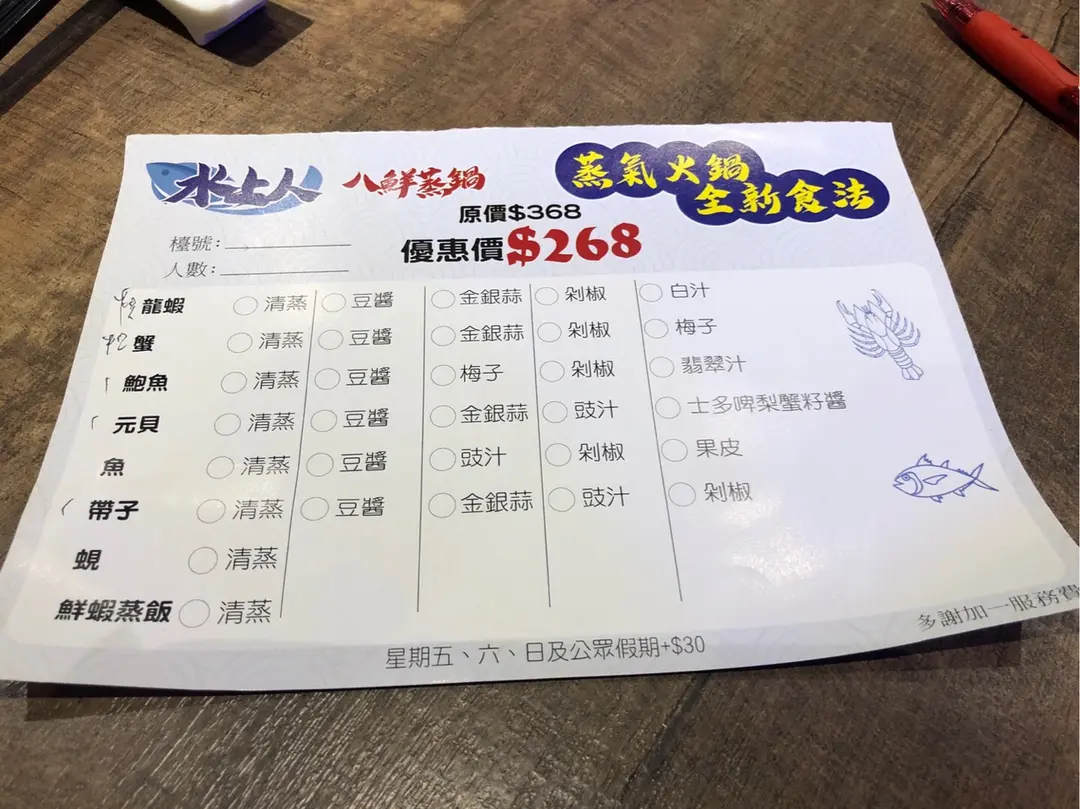 水上人 八鮮蒸鍋 蒸氣火鍋
全新食法
原價$368
檯號：
優惠價$268
人數：
龍蝦 清蒸 豆醬 金銀蒜 剁椒 白汁
蟹 清蒸 豆醬 金銀蒜 剁椒 梅子
鮑魚 清蒸 豆醬 梅子 剁椒 翡翠汁
元貝 清蒸 豆醬 金銀蒜 豉汁 士多啤梨蟹籽醬
魚 清蒸 豆醬 豉汁 剁椒 果皮
帶子 清蒸 豆醬 金銀蒜 豉汁 剁椒
蜆 清蒸
鮮蝦蒸飯 清蒸
多謝加一服務費
星期五、六、日及公眾假期+$30